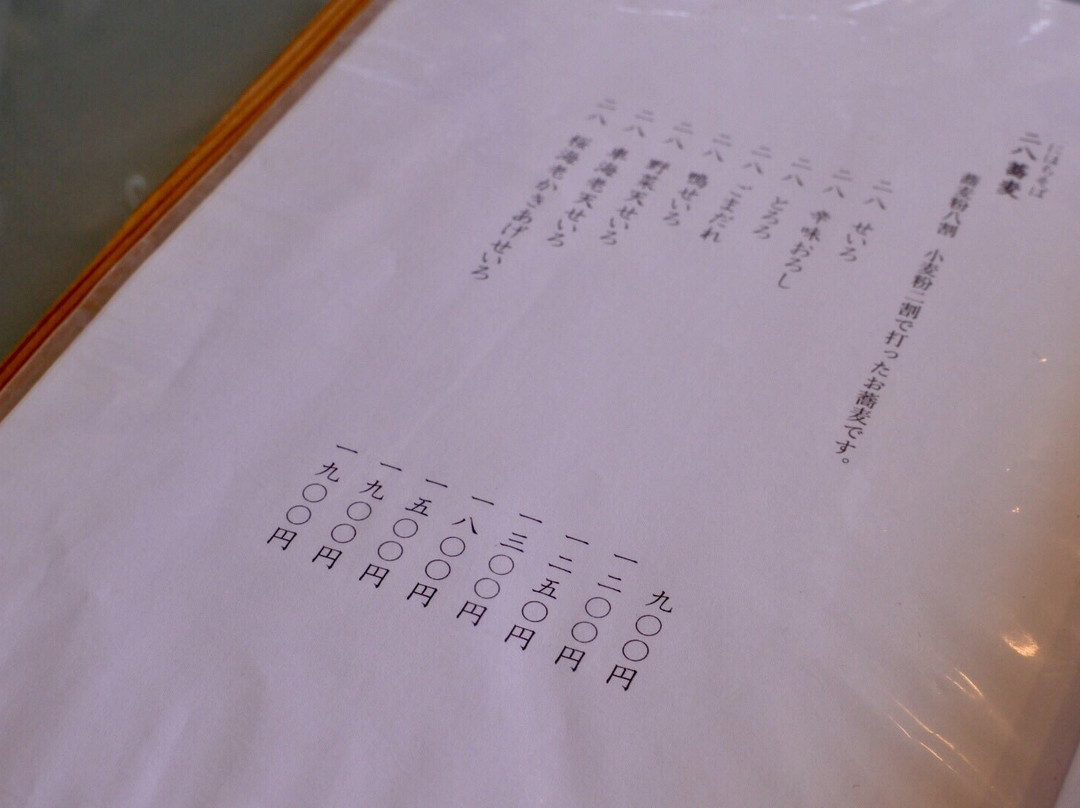 にはちそば
二八蕎麦
蕎麦粉八割 小麦粉二割で打ったお蕎麦です。
二八 せいろ 九〇〇円
二八 辛味おろし 一二〇〇円
二八 とろろ 一二五〇円
二八 ごまだれ 一三〇〇円
二八 鴨せいろ 一八〇〇円
二八 野菜天せいろ 一五〇〇円
二八 車海老天せいろ 一九〇〇円
二八 桜海老かきあげせいろ 一九〇〇円